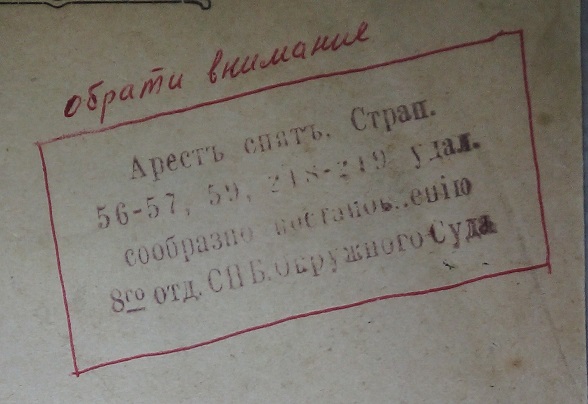 обрати внимания
Арестъ снятъ. Стран.
56-57, 59, 218-219 удал.
сообразно постановленію
8го отд. СПБ. Окружного Суда